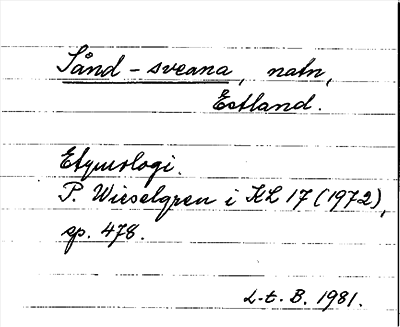 Sånd-sveana, natn,
Estland.
Etymologi.
P. Wieselgren i KL 17 (1972),
sp. 478.
L.t. B. 1981.